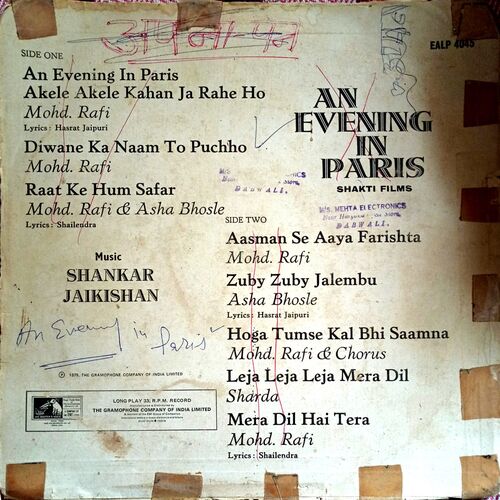 अपना-पन
EALP 4045
SIDE ONE
An Evening In Paris
Akele Akele Kahan Ja Rahe Ho
Mohd. Rafi
Lyrics : Hasrat Jaipuri
Diwane Ka Naam To Puchho
Mohd. Rafi
Raat Ke Hum Safar
Mohd. Rafi & Asha Bhosle
Lyrics : Shailendra
Music
SHANKAR
JAIKISHAN
An Evening in Paris
℗ 1975, THE GRAMOPHONE COMPANY OF INDIA LIMITED
LONG PLAY 33⅓ R.P.M. RECORD
THE GRAMOPHONE COMPANY OF INDIA LIMITED
AN
EVENING
IN
PARIS
SHAKTI FILMS
M/S. 
DABWALI.
M/S. MEHTA ELECTRONICS
Near
DABWALI.
SIDE TWO
Aasman Se Aaya Farishta
Mohd. Rafi
Zuby Zuby Jalembu
Asha Bhosle
Lyrics : Hasrat Jaipuri
Hoga Tumse Kal Bhi Saamna
Mohd. Rafi & Chorus
Leja Leja Leja Mera Dil
Sharda
Mera Dil Hai Tera
Mohd. Rafi
Lyrics : Shailendra